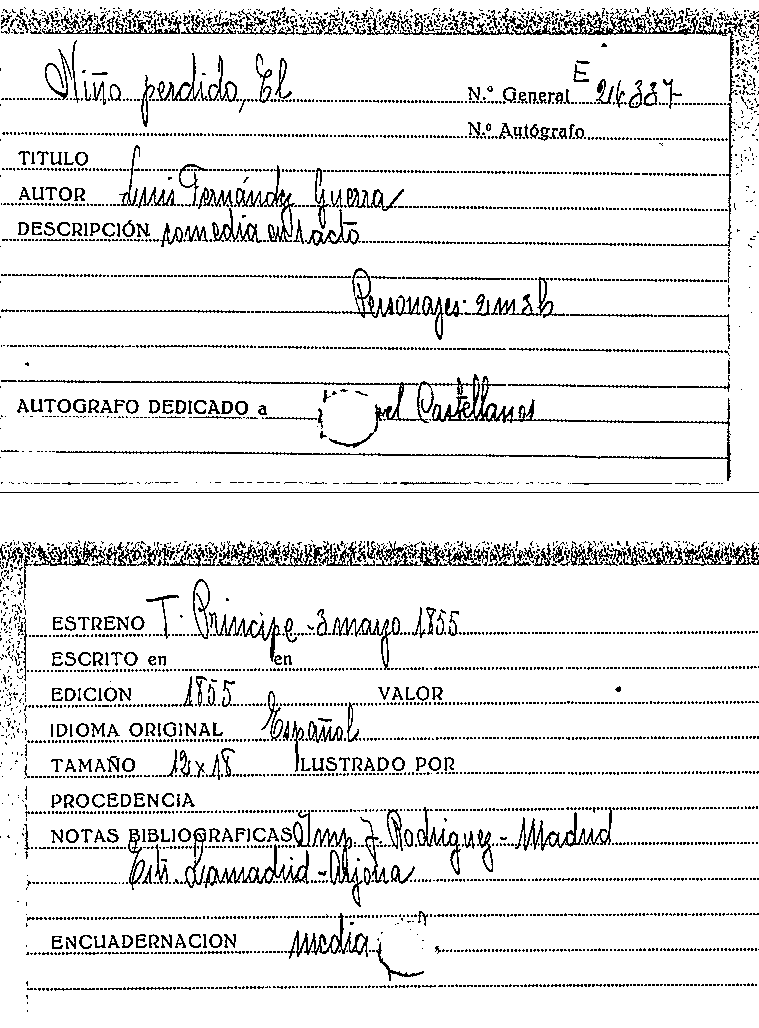 Niño perdido, El
N.º General E
N.º Autógrafo
TITULO
AUTOR Luis Fernández Guerra
DESCRIPCIÓN comedia en 1 acto
Personajes: 2m 3h
AUTOGRAFO DEDICADO a Castellanos
ESTRENO T. Principe - 3 mayo 1855
ESCRITO en en
EDICION 1855 VALOR
IDIOMA ORIGINAL Español
TAMAÑO 12 x 18 ILUSTRADO POR
PROCEDENCIA
NOTAS BIBLIOGRAFICAS Imp. J. Rodriguez - Madrid
Estr. Lamadrid - Arjona
ENCUADERNACION media